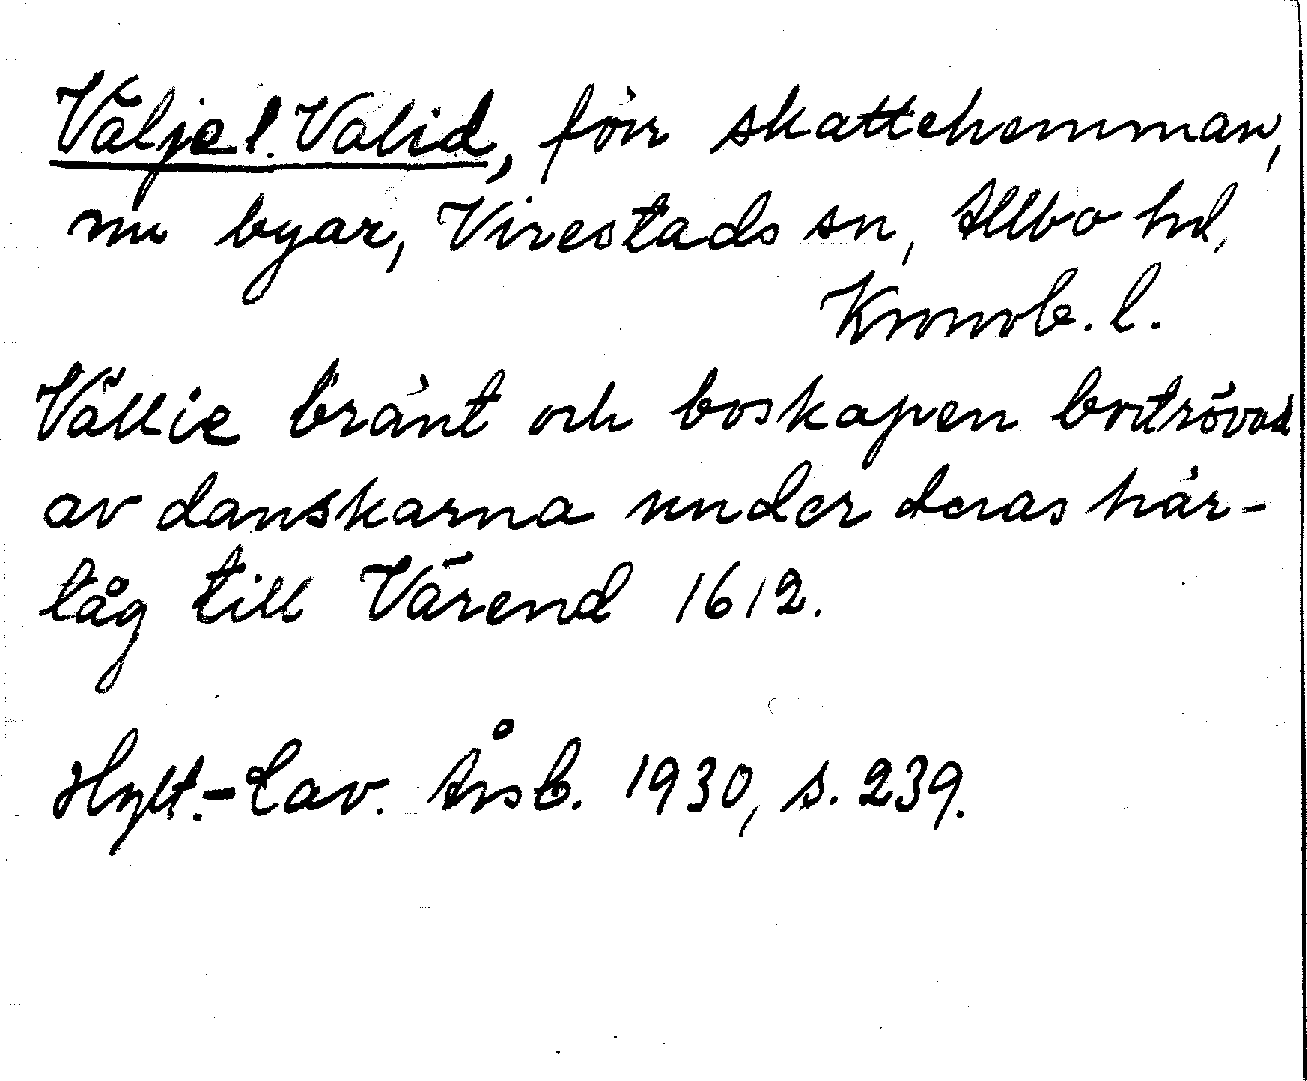 Välje l. Valid, förr skattehemman,
nu byar, Virestads sn, Allbo hd,
Kronob. l.
Vällie bränt och boskapen bortrövad
av danskarna under deras här-
tåg till Värend 1612.
Hylt.-Cav. Årsb. 1930, s. 239.